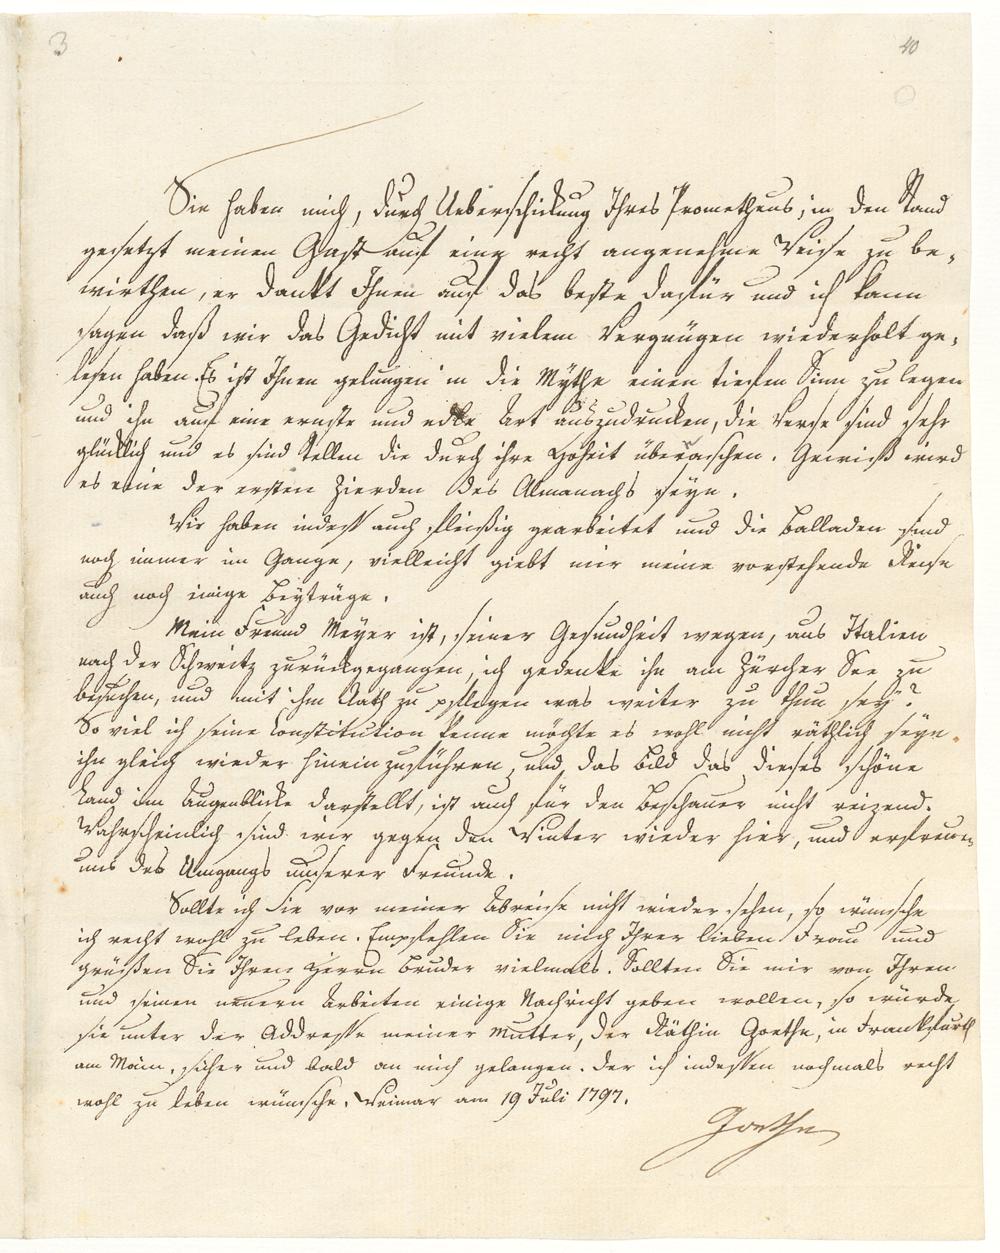 3
40
Sie haben mich, durch Ueberschickung Ihres Prometheus, in den Stand
gesetzt meinen Gast auf eine recht angenehme Weise zu be-
wirthen, er dankt Ihnen auf das beste dafür und ich kann
sagen daß wir das Gedicht mit vielem Vergnügen wiederholt ge-
lesen haben. Es ist Ihnen gelungen in die Mythe einen tiefen Sinn zu legen
und ihn auf eine ernste und edle Art auszudrucken, die Verse sind sehr
glücklich und es sind Stellen die durch ihre Hoheit überraschen. Gewiß wird
es eine der ersten Zierden des Almanachs seyn.
Wir haben indeß auch fleißig gearbeitet und die Balladen sind
noch immer im Gange, vielleicht giebt mir meine vorstehende Reise
auch noch einige Beyträge.
Mein Freund Meyer ist, seiner Gesundheit wegen, aus Italien
nach der Schweitz zurückgegangen, ich gedenke ihn am Zürcher See zu
besuchen, und mit ihm Rath zu pflegen was weiter zu thun sey?
So viel ich seine Constitution kenne möchte es wohl nicht räthlich seyn
ihn gleich wieder hineinzuführen, und das Bild das dieses schöne
Land im Augenblicke darstellt, ist auch für den Beschauer nicht reizend.
Wahrscheinlich sind wir gegen den Winter wieder hier, und erfreuen
uns des Umgangs unserer Freunde.
Sollte ich Sie vor meiner Abreise nicht wieder sehen, so wünsche
ich recht wohl zu leben. Empfehlen Sie mich Ihrer lieben Frau und
grüßen Sie Ihren Herrn Bruder vielmals. Sollten Sie mir von Ihren
und seinen neuern Arbeiten einige Nachricht geben wollen, so würde
sie unter der Addresse meiner Mutter, der Räthin Goethe, in Frankfurth
am Main, sicher und bald an mich gelangen. Der ich indessen nochmals recht
wohl zu leben wünsche. Weimar am 19 Juli 1797.
Goethe